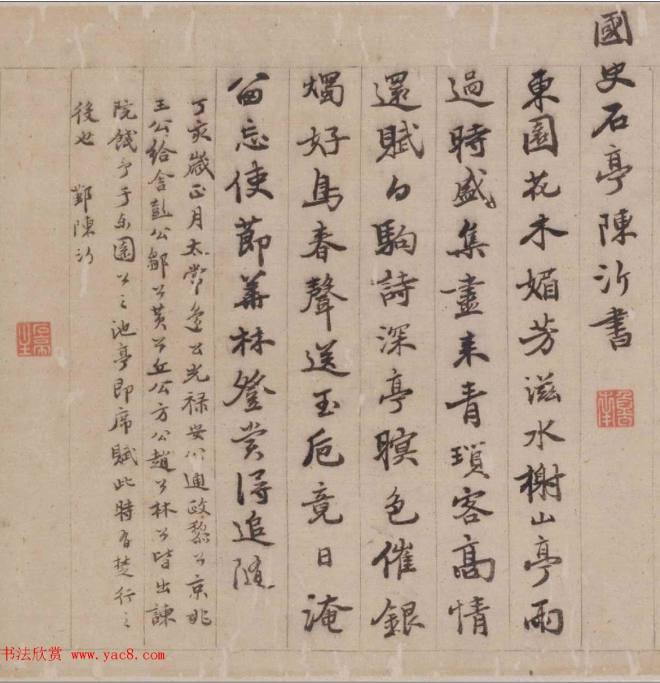 國史石亭陳沂書
東園花木媚芳滋水榭山亭雨
過時盛集盡来青瑣客高情
還賦白駒詩深亭暝色催銀
燭好鳥春聲送玉巵竟日淹
留忘使節華林登賞得追随
丁亥歲正月太常邊公光禄安公通政黎公京兆
王公給舍彭公鄒公黄公丘公方公趙公林公皆出諫
院餞予于東園公之池亭即席賦此時有楚行之
後也 鄞陳沂
书法欣赏 www.yac8.com